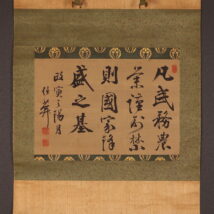 凡武務農
業謹刑禁
則國家隆
盛之基
寅之陽月